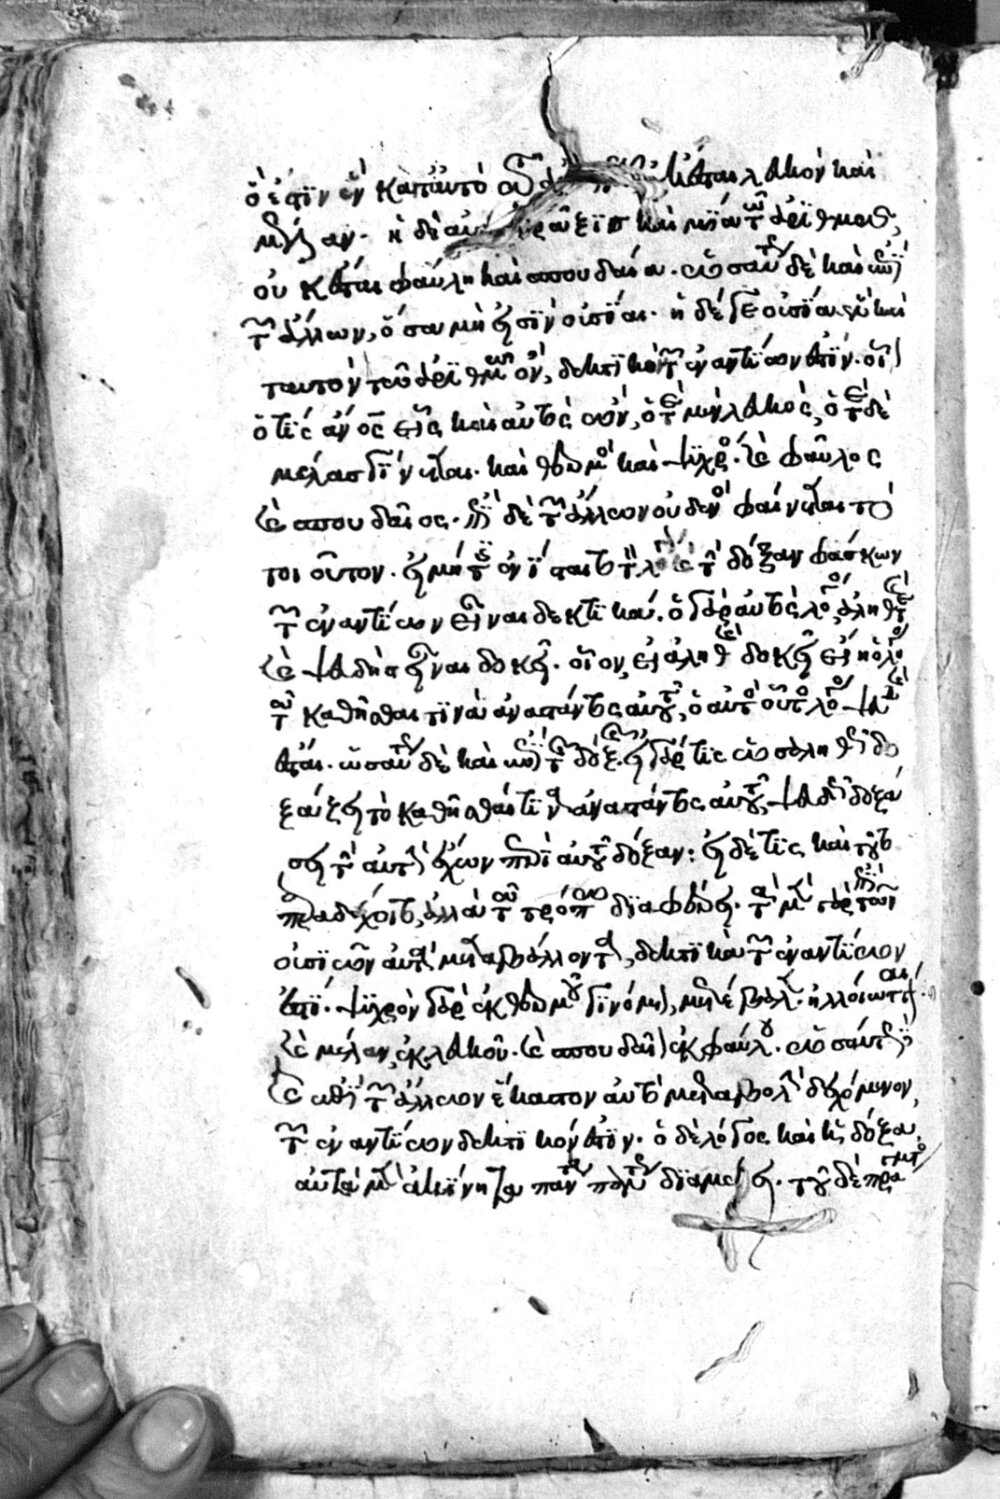 ὅ ἐστὶν ἓν καὶ ταὐτὸ οὐκ ἔσται λευκὸν καὶ
μέλαν· ἡ δὲ αὐτὴ πρᾶξις καὶ μία τῶ ἀριθμῶ,
οὐκ ἔσται φαύλη καὶ σπουδαία· ὡσαύτως δὲ καὶ ἐπὶ
τῶν ἄλλων, ὅσα μή εἰσιν οὐσίαι· ἡ δέ γε οὐσία ἓν καὶ
ταυτὸν τῶ ἀριθμῶ ὄν, δεκτικὸν τῶν ἐναντίων ἐστίν· οἷον
ὅ τὶς ἄνος εἷς καὶ αὐτὸς ὤν, ὁτὲ μὲν λευκὸς, ὁτὲ δὲ
μέλας γίνεται· καὶ θερμὸς καὶ ψυχρός· καὶ φαῦλος
καὶ σπουδαῖος· ἐπὶ δὲ τῶν ἄλλων οὐδενὸς φαίνεται τὸ
τοιοῦτον· εἰ μή τις ἐνίσταιτο τὸν λόγον καὶ τὴν δόξαν φάσκων
τῶν ἐναντίων εἶναι δεκτικά· ὁ γὰρ αὐτὸς λόγος, ἀληθής τε
καὶ ψευδὴς εἶναι δοκεῖ· οἷον, εἰ ἀληθὴς δοκεῖ εἶναι ὁ λόγος
τοῦ καθῆσθαι τινὰ ἀναστάντος αὐτοῦ, ὁ αὐτὸς οὗτος λόγος ψευδὴς
ἔσται· ὡσαύτως δὲ καὶ ἐπὶ τῆς δόξης· εἰ γάρ τις ὡς ἀληθῆ δο
ξάζει τὸ καθῆσθαι τινὰ ἀναστάντος αὐτοῦ, ψευδῆ δοξά
σει τὴν αὐτὴν ἔχων περὶ αὐτοῦ δόξαν: εἰ δέ τις καὶ τοῦτο
παραδέχοιτο, ἀλλὰ τοῦ τρόπω διαφέρει· τὰ μὲν γὰρ ἐπὶ τῶν
οὐσιῶν αὐτὰ μεταβάλλοντα, δεκτικὰ τῶν ἐναντίων
ἐστί· ψυχρὸν γὰρ ἐκ θερμοῦ γινόμενον, μετέβαλεν· ἠλλοίωται γάρ·
καὶ μέλαν ἐκ λευκοῦ· καὶ σπουδαῖον ἐκ φαύλου· ὡσαύτως δὲ
καὶ ἐπὶ τῶν ἄλλων ἕκαστον αὐτὸ μεταβολὴν δεχόμενον,
τῶν ἐναντίων δεκτικόν ἐστιν· ὁ δὲ λόγος καὶ ἡ δόξα,
αὐτὰ μὲν ἀκίνητα πάντη πάντως διαμένει· τοῦ δὲ πράγματος